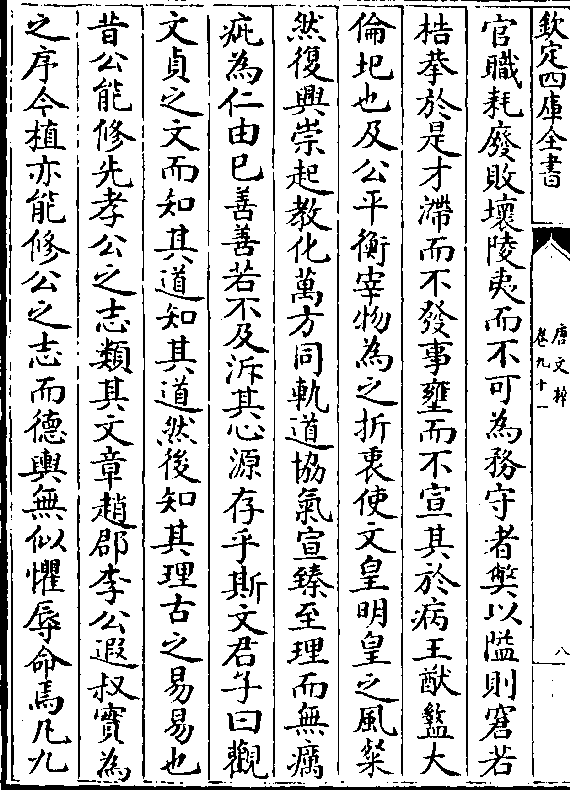 欽定四庫全書
唐文粹
卷九十一
八
官職耗廢敗壞陵夷而不可為務守者獘以隘則窘若
桔拲於是才滯而不發事壅而不宣其於病王猷盭大
倫圯也及公平衡宰物為之折衷使文皇明皇之風粲
然復興崇起教化萬方同軌道協氣宣臻至理而無癘
疵為仁由已善善若不及泝其心源存乎斯文君子曰觀
文貞之文而知其道知其道然後知其理古之易易也
昔公能修先孝公之志類其文章趙郡李公遐叔實為
之序今植亦能修公之志而德輿無似懼辱命焉凡九